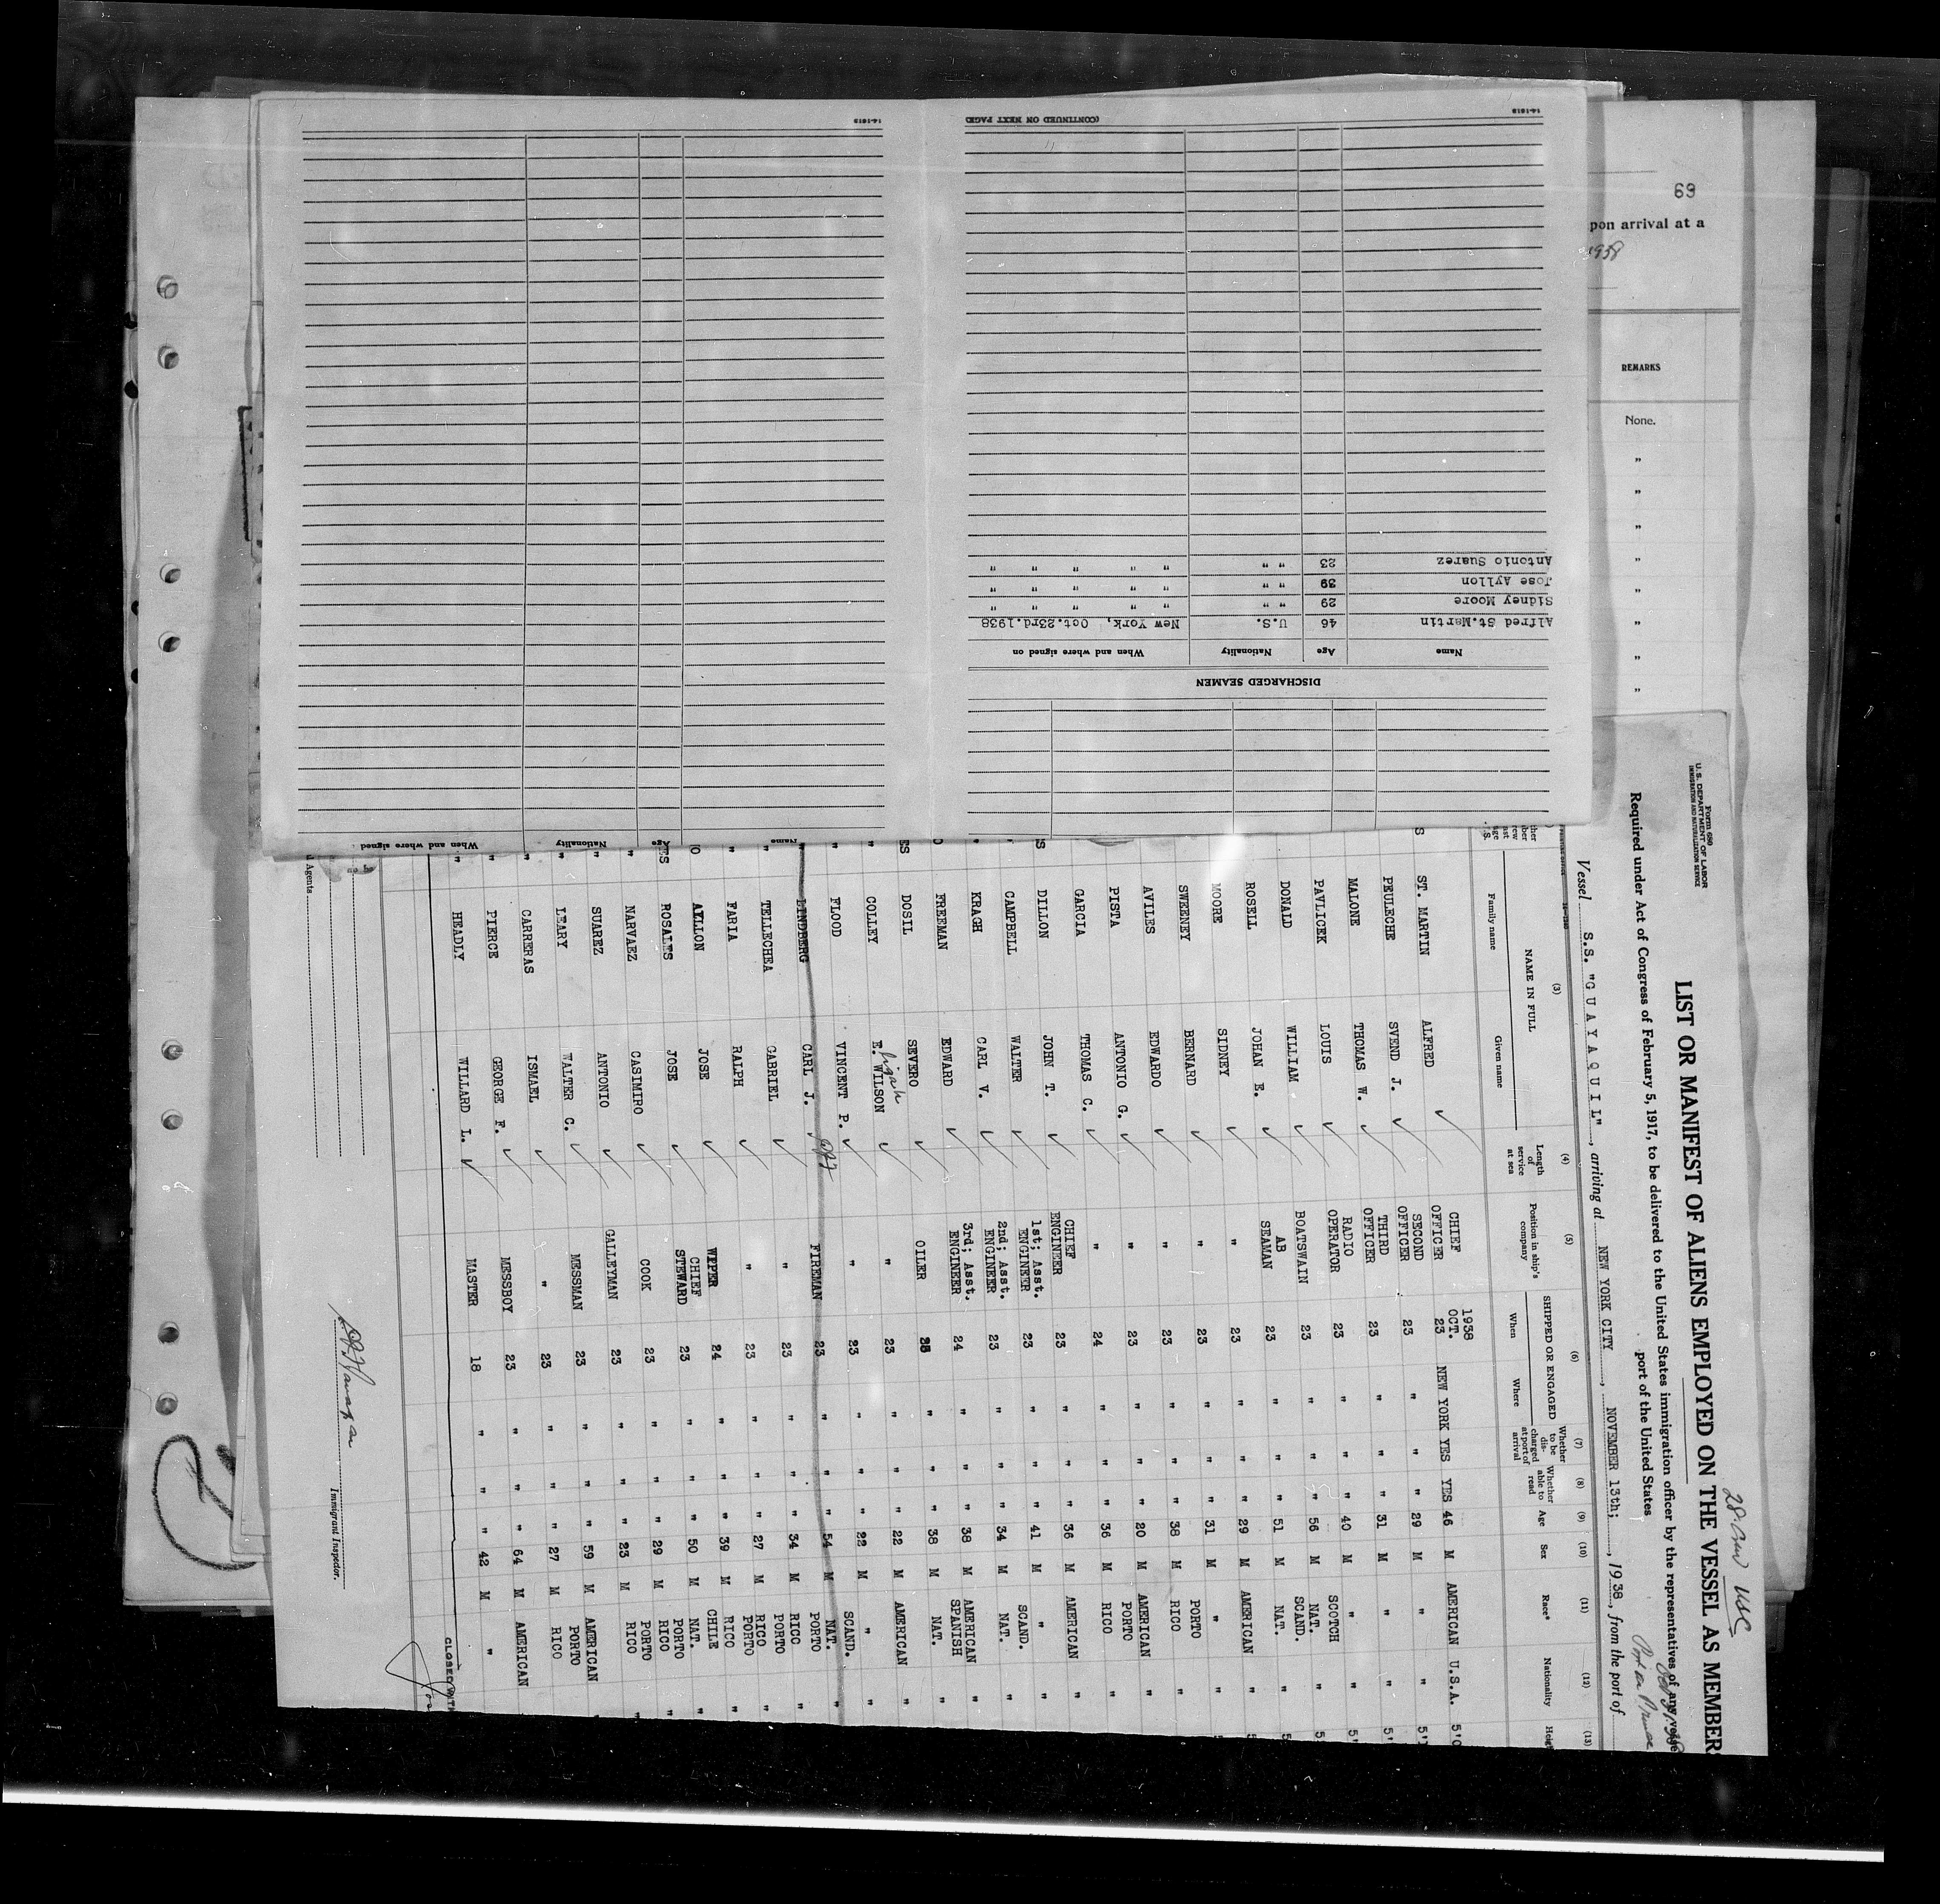 14-1613
(CONTINUED ON NEXT PAGE)
14-1613
Antonio Suarez 23 " " " " " " "
Jose Ayllon 39 " " " " " " "
Sidney Moore 29 " " " " " " "
Alfred St.Martin 46 U.S. New York, Oct.23rd.1938
Name Age Nationality When and where signed on
DISCHARGED SEAMEN
Name Age Nationality When and where signed
69
pon arrival at a
1938
REMARKS
None.
"
"
"
"
"
"
"
"
Form 680
U. S. DEPARTMENT OF LABOR
IMMIGRATION AND NATURALIZATION SERVICE
28. USC
LIST OR MANIFEST OF ALIENS EMPLOYED ON THE VESSEL AS MEMBER
Required under Act of Congress of February 5, 1917, to be delivered to the United States immigration officer by the representatives of any vesse
port of the United States
Vessel S.S. "G U A Y A Q U I L", arriving at NEW YORK CITY, NOVEMBER 13th;, 1938, from the port of
(3) (4) (5) (6) (7) (8) (9) (10) (11) (12) (13)
NAME IN FULL Family name Given name Length of service at sea Position in ship's company SHIPPED OR ENGAGED When Where Whether to be discharged at port of arrival Whether able to read Age Sex Race* Nationality Heig
ST. MARTIN ALFRED CHIEF OFFICER 1938 OCT. 23 NEW YORK YES YES 46 M AMERICAN U.S.A.
PEULECHE SVEND J. SECOND OFFICER 23 " " " 29 M " "
MALONE THOMAS W. THIRD OFFICER 23 " " " 31 M " "
PAVLICEK LOUIS RADIO OPERATOR 23 " " " 40 M " "
DONALD WILLIAM BOATSWAIN 23 " " " 56 M SCOTCH NAT. "
ROSELL JOHAN E. AB SEAMAN 23 " " " 51 M SCAND. NAT. "
MOORE SIDNEY " 23 " " " 29 M AMERICAN "
SWEENEY BERNARD " 23 " " " 31 M " "
AVILES EDWARDO " 23 " " " 38 M PORTO RICO "
PISTA ANTONIO G. " 23 " " " 20 M AMERICAN "
GARCIA THOMAS C. " 24 " " " 36 M PORTO RICO "
DILLON JOHN T. CHIEF ENGINEER 23 " " " 36 M AMERICAN "
CAMPBELL WALTER 1st; Asst. ENGINEER 23 " " " 41 M " "
KRAGH CARL V. 2nd; Asst. ENGINEER 23 " " " 34 M SCAND. NAT. "
FREEMAN EDWARD 3rd; Asst. ENGINEER 24 " " " 38 M AMERICAN "
DOSIL SEVERO OILER " " " 38 M SPANISH NAT. "
COLLEY E. WILSON " 23 " " " 22 M AMERICAN "
FLOOD VINCENT P. " 23 " " " 22 M " "
LINDBERG CARL J. FIREMAN 23 " " " 54 M SCAND. NAT. "
TELLECHEA GABRIEL " 23 " " " 34 M PORTO RICO "
FARIA RALPH " 23 " " " 27 M PORTO RICO "
AYLLON JOSE WIPER 24 " " " 39 M CHILE NAT. "
ROSALES JOSE CHIEF STEWARD 23 " " " 50 M PORTO RICO "
NARVAEZ CASIMIRO COOK 23 " " " 29 M PORTO RICO "
SUAREZ ANTONIO GALLEYMAN 23 " " " 23 M PORTO RICO "
LEARY WALTER C. MESSMAN 23 " " " 59 M AMERICAN "
CARRERAS ISMAEL " 23 " " " 27 M PORTO RICO
PIERCE GEORGE F. MESSBOY 23 " " " 64 M AMERICAN
HEADLY WILLARD L. MASTER 18 " " " 42 M "
CLOSED WITH
Immigrant Inspector.
Agents